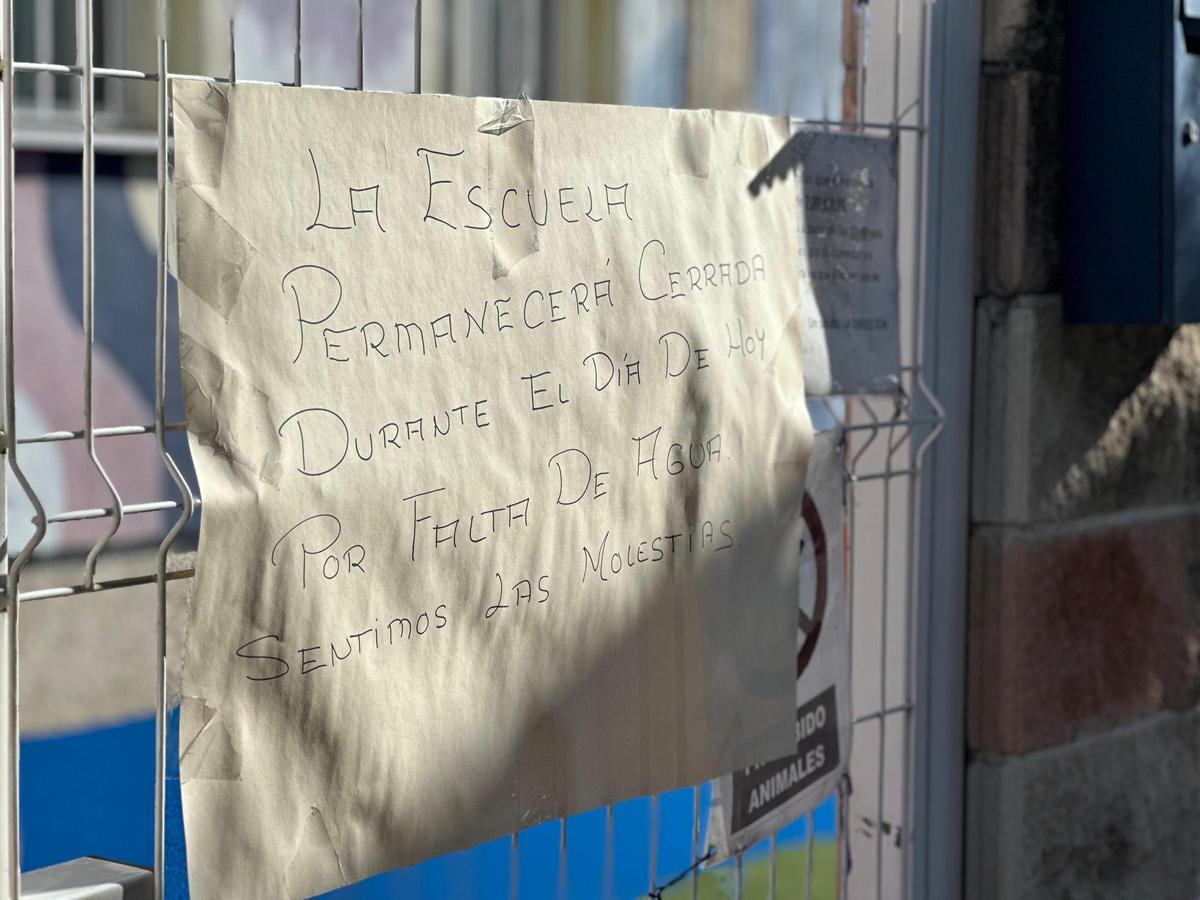 La Escuela
Permanecerá Cerrada
Durante El Día De Hoy
Por Falta De Agua.
Sentimos Las Molestias.
LA DIRECCIÓN
BIDO
ANIMALES